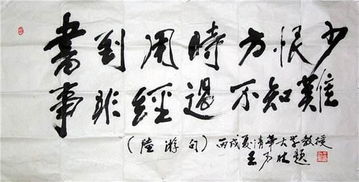 書到用時方恨少
事非經過不知難
(陸游句) 丙戌夏清華大学教授
王
題